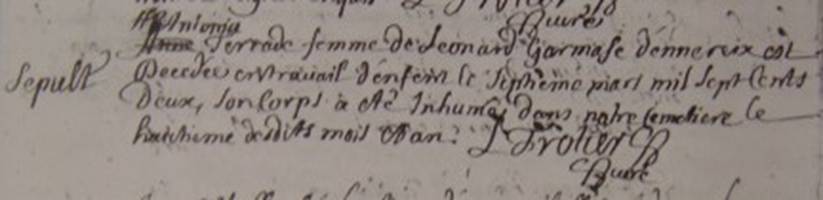 Curé
Antonia
Anne Terrade femme de Leonard Garmase d'ennereix est
Sepult Decedée en travail d'enfent le septieme mars mil sept Cents
deux, son Corps a eté Inhumé dans notre Cemetiere le
huictieme desdits mois et an. Frotier
Curé